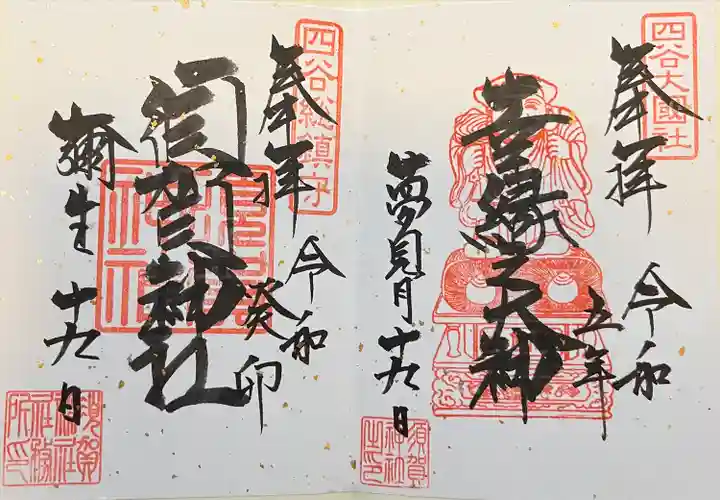 四谷大國社
奉拝
令和
五年
善縁之大神
夢見月十九日
須賀
神社
之印
四谷総鎮守
奉拝
令和
癸卯
神社
彌生十九日
須賀
神社
社務
所印